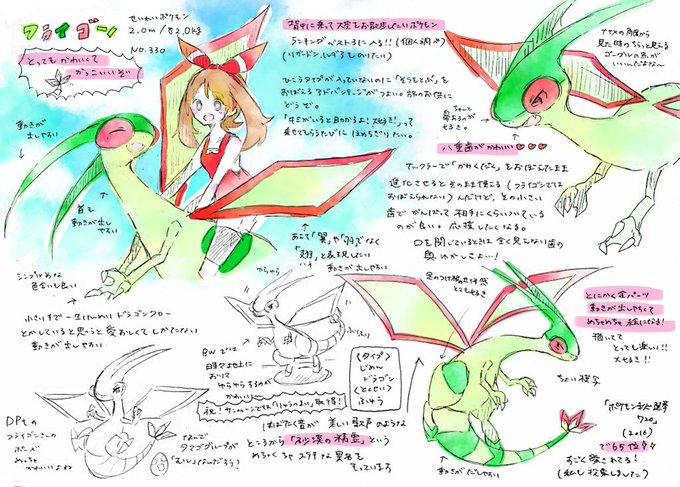 フライゴン
せいれいポケモン
2.0m/82.0kg
NO.330
とっても かわいくて
かっこいいぞい
動きが
出しやすい
首も
動きが出し
やすい
シンプルめな
色合いも良い
背中に乗って大空をお散歩したいポケモン
ランキングベスト3に入る!!(個人調べ)
(リザードン、
ひこうタイプが入っていないのに「そらをとぶ」を
おぼえる アドバンテージがつよい。旅のお供に
どうぞ。
「キミがいると助かるよ!大好き!」って
乗せてもらうたびに ほめちぎりたい。
ナナメの角度から
見た時のちらっと見える
ゴーグルの裏が
いいんだよな~
八重歯がかわいい♡♡♡
ナックラーで「かみくだく」をおぼえたまま
進化させると そのまま使える(フライゴンでは
おぼえられない)んだけど、その小さい
歯でがんばって相手にくらいついている
のが良い。応援したくなる。
口を閉じているときは全く見えない歯の
あえて「翼」や「羽」でなく
「翅」と表現したい
動きが出しやすい
小さい手で一生けんめいドラゴンクロー
とかしていると思うと愛おしくてしかたない
動きが出しやすい
ゆらゆら
BWでは
時々地上に
おりて
ゆらゆらするのが
かわいい
(タイプ)
じめん
ドラゴン
(とくせい)
ふゆう
とにかく全パーツ
動きが出しやすくて
めちゃめちゃ絵になる!
描いてて
とっても楽しい!!
大好き!!
はばたく音が 美しい歌声のような
ところから「砂漠の精霊」という
めちゃくちゃステキな異名を
もっています
DPtの
フライゴンさんの
ポーズ
めっちゃ
かわいいよね
なんで
タマゴグループが
「むし」なんだろう?
動きがだしやすい
「ポケモン総選挙
720」
(2016)
で65位
すごく愛されてる!
(私も投票しました)